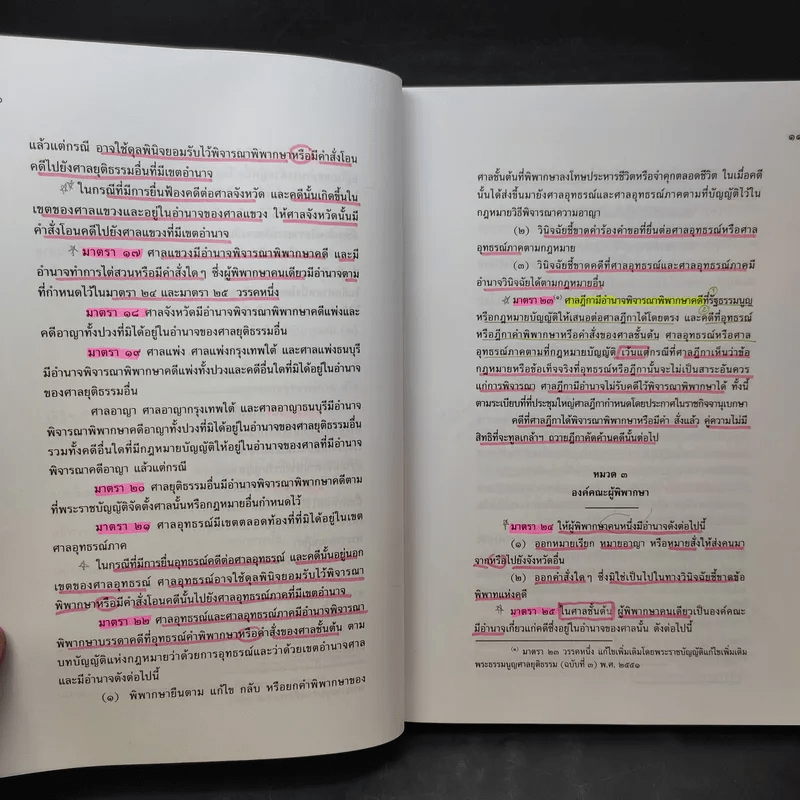 แล้วแต่กรณี อาจใช้ดุลพินิจยอมรับไว้พิจารณาพิพากษาหรือมีคำสั่งโอน
คดีไปยังศาลยุติธรรมอื่นที่มีเขตอำนาจ
ในกรณีที่มีการยื่นฟ้องคดีต่อศาลจังหวัด และคดีนั้นเกิดขึ้นใน
เขตของศาลแขวงและอยู่ในอำนาจของศาลแขวง ให้ศาลจังหวัดนั้นมี
คำสั่งโอนคดีไปยังศาลแขวงที่มีเขตอำนาจ
มาตรา ๑๗ ศาลแขวงมีอำนาจพิจารณาพิพากษาคดี และมี
อำนาจทำการไต่สวนหรือมีคำสั่งใดๆ ซึ่งผู้พิพากษาคนเดียวมีอำนาจตาม
ที่กำหนดไว้ในมาตรา ๒๔ และมาตรา ๒๕ วรรคหนึ่ง
มาตรา ๑๘ ศาลจังหวัดมีอำนาจพิจารณาพิพากษาคดีแพ่งและ
คดีอาญาทั้งปวงที่มิได้อยู่ในอำนาจของศาลยุติธรรมอื่น
มาตรา ๑๙ ศาลแพ่ง ศาลแพ่งกรุงเทพใต้ และศาลแพ่งธนบุรี
มีอำนาจพิจารณาพิพากษาคดีแพ่งทั้งปวงและคดีอื่นใดที่มิได้อยู่ในอำนาจ
ของศาลยุติธรรมอื่น
ศาลอาญา ศาลอาญากรุงเทพใต้ และศาลอาญาธนบุรีมีอำนาจ
พิจารณาพิพากษาคดีอาญาทั้งปวงที่มิได้อยู่ในอำนาจของศาลยุติธรรมอื่น
รวมทั้งคดีอื่นใดที่มีกฎหมายบัญญัติให้อยู่ในอำนาจของศาลที่มีอำนาจ
พิจารณาคดีอาญา แล้วแต่กรณี
มาตรา ๒๐ ศาลยุติธรรมอื่นมีอำนาจพิจารณาพิพากษาคดีตาม
ที่พระราชบัญญัติจัดตั้งศาลนั้นหรือกฎหมายอื่นกำหนดไว้
มาตรา ๒๑ ศาลอุทธรณ์มีเขตตลอดท้องที่ที่มิได้อยู่ในเขต
ศาลอุทธรณ์ภาค
ในกรณีที่มีการยื่นอุทธรณ์คดีต่อศาลอุทธรณ์ และคดีนั้นอยู่นอก
เขตของศาลอุทธรณ์ ศาลอุทธรณ์อาจใช้ดุลพินิจยอมรับไว้พิจารณา
พิพากษาหรือมีคำสั่งโอนคดีนั้นไปยังศาลอุทธรณ์ภาคที่มีเขตอำนาจ
มาตรา ๒๒ ศาลอุทธรณ์และศาลอุทธรณ์ภาคมีอำนาจพิจารณา
พิพากษาบรรดาคดีที่อุทธรณ์คำพิพากษาหรือคำสั่งของศาลชั้นต้น ตาม
บทบัญญัติแห่งกฎหมายว่าด้วยการอุทธรณ์และว่าด้วยเขตอำนาจศาล
และมีอำนาจดังต่อไปนี้
(๑) พิพากษายืนตาม แก้ไข กลับ หรือยกคำพิพากษาของ
๑๑
ศาลชั้นต้นที่พิพากษาลงโทษประหารชีวิตหรือจำคุกตลอดชีวิต ในเมื่อคดี
นั้นได้ส่งขึ้นมายังศาลอุทธรณ์และศาลอุทธรณ์ภาคตามที่บัญญัติไว้ใน
กฎหมายวิธีพิจารณาความอาญา
(๒) วินิจฉัยชี้ขาดคำร้องคำขอที่ยื่นต่อศาลอุทธรณ์หรือศาล
อุทธรณ์ภาคตามกฎหมาย
(๓) วินิจฉัยชี้ขาดคดีที่ศาลอุทธรณ์และศาลอุทธรณ์ภาคมี
อำนาจวินิจฉัยได้ตามกฎหมายอื่น
มาตรา ๒๓⁽¹⁾ ศาลฎีกามีอำนาจพิจารณาพิพากษาคดีที่รัฐธรรมนูญ
หรือกฎหมายบัญญัติให้เสนอต่อศาลฎีกาได้โดยตรง และคดีที่อุทธรณ์
หรือฎีกาคำพิพากษาหรือคำสั่งของศาลชั้นต้น ศาลอุทธรณ์หรือศาล
อุทธรณ์ภาคตามที่กฎหมายบัญญัติ เว้นแต่กรณีที่ศาลฎีกาเห็นว่าข้อ
กฎหมายหรือข้อเท็จจริงที่อุทธรณ์หรือฎีกานั้นจะไม่เป็นสาระอันควร
แก่การพิจารณา ศาลฎีกามีอำนาจไม่รับคดีไว้พิจารณาพิพากษาได้ ทั้งนี้
ตามระเบียบที่ที่ประชุมใหญ่ศาลฎีกากำหนดโดยประกาศในราชกิจจานุเบกษา
คดีที่ศาลฎีกาได้พิจารณาพิพากษาหรือมีคำ สั่งแล้ว คู่ความไม่มี
สิทธิที่จะทูลเกล้าฯ ถวายฎีกาคัดค้านคดีนั้นต่อไป
หมวด ๓
องค์คณะผู้พิพากษา
มาตรา ๒๔ ให้ผู้พิพากษาคนหนึ่งมีอำนาจดังต่อไปนี้
(๑) ออกหมายเรียก หมายอาญา หรือหมายสั่งให้ส่งคนมา
จากหรือไปยังจังหวัดอื่น
(๒) ออกคำสั่งใดๆ ซึ่งมิใช่เป็นไปในทางวินิจฉัยชี้ขาดข้อ
พิพาทแห่งคดี
มาตรา ๒๕ ในศาลชั้นต้น ผู้พิพากษาคนเดียวเป็นองค์คณะ
มีอำนาจเกี่ยวแก่คดีซึ่งอยู่ในอำนาจของศาลนั้น ดังต่อไปนี้
⁽¹⁾ มาตรา ๒๓ วรรคหนึ่ง แก้ไขเพิ่มเติมโดยพระราชบัญญัติแก้ไขเพิ่มเติม
พระธรรมนูญศาลยุติธรรม (ฉบับที่ ๓) พ.ศ. ๒๕๕๑